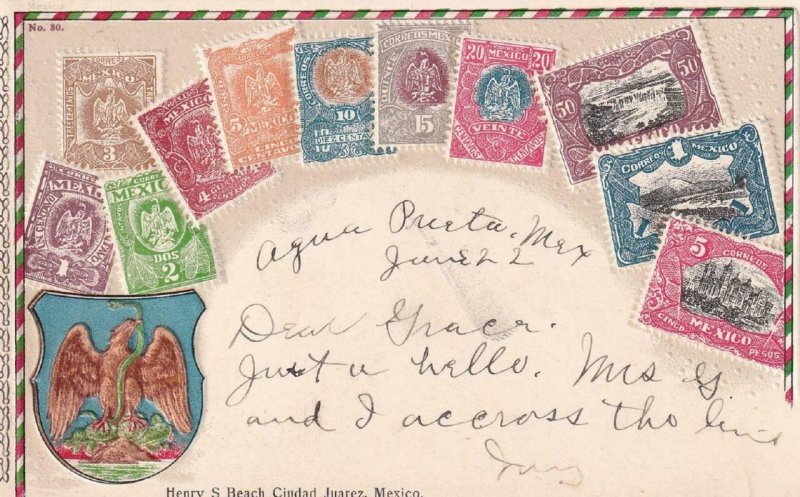 No. 30.
CORREOS MEXICO
3
CORREOS
MEXICO
4
CENTAVOS
MEXICO
5
CINCO
CENTAVOS
CORREOS
MEXICO
10
DIEZ CENTAVOS
CORREOS MEXICO
QUINCE
15
20 20
MEXICO
VEINTE
CENTAVOS
50 50
MEXICO
CORREOS 1 MEXICO
5
CORREOS
5
CINCO
MEXICO
PESOS
MEXICO
UN CENTAVO
1
MEXICO
DOS
2
Agua Prieta, Mex
June 22
Dear Grace.
Just a hello. Mrs G
and I accross the line
Henry S Beach Ciudad Juarez, Mexico.